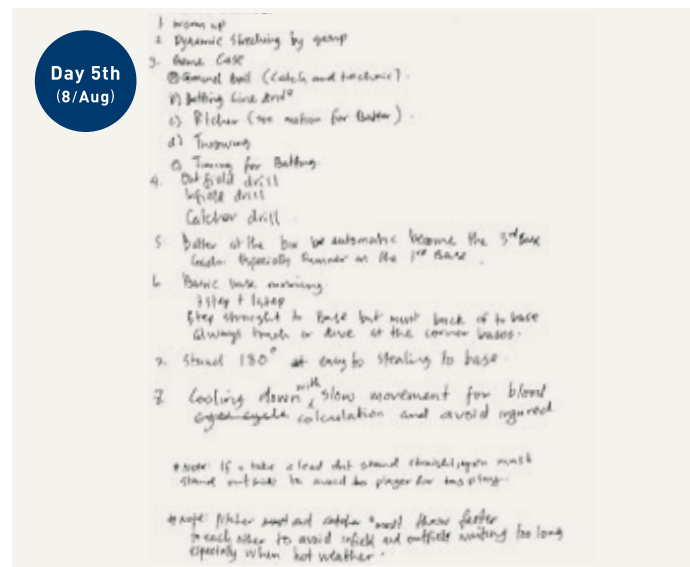 Day 5th
(8/Aug)
1 warm up
2 Dynamic Streching by group
3. Game Case
a) Ground Ball (Catch and technic).
b) Batting Line drill
c) Pitcher (see motion for Batter).
d) Throwing
e) Timing for Batting.
4. Out field drill
Infield drill
Catcher drill
5. Batter at the box be automatic become the 3rd Base
Coach. Especially Runner on the 1st Base.
6 Basic base running
7 step + 1 step
Step straight to Base but must back of to base
Always touch or dive at the corner bases.
7. Stand 180° at easy to stealing to base
8 Cooling down with slow movement for blood
cycle calculation and avoid injured
* Note: If a take a lead dnt stand straight, you must
stand outside to avoid to player for tag play.
* Note: Pitcher must and catcher must throw faster
to each other to avoid infield and outfield waiting too long
especially when hot weather.